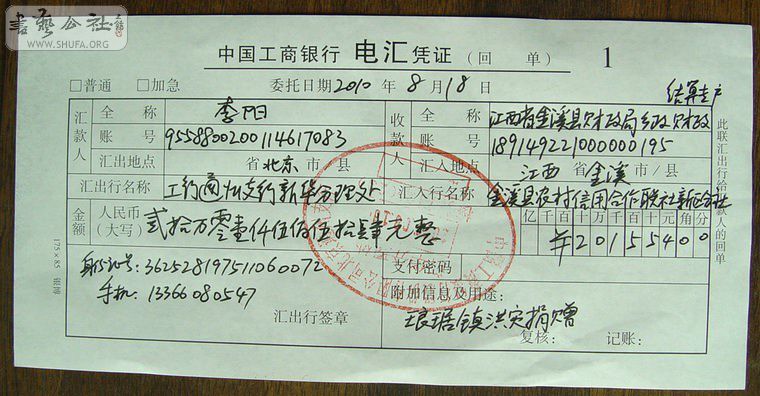 書藝公社
WWW.SHUFA.ORG
中国工商银行 电汇凭证 (回 单) 1
□普通 □加急 委托日期 2010 年 8 月 18 日
结算专户
汇款人 全称 李阳 收款人 全称 江西省金溪县财政局乡政财政
账号 9558800200114617083 账号 189149221000000195
汇出地点 省 北京 市/县 汇入地点 江西 省 金溪 市/县
汇出行名称 工行通州支行新华分理处 汇入行名称 金溪县农村信用合作联社
金额 人民币(大写) 贰拾万零壹仟伍佰伍拾肆元整 亿千百十万千百十元角分
¥20155400
身份证号:362528197511060072 支付密码
手机:13366080547 附加信息及用途:
琅琚镇洪灾捐赠
汇出行签章 复核: 记账:
此联汇出行给汇款人的回单
175×85